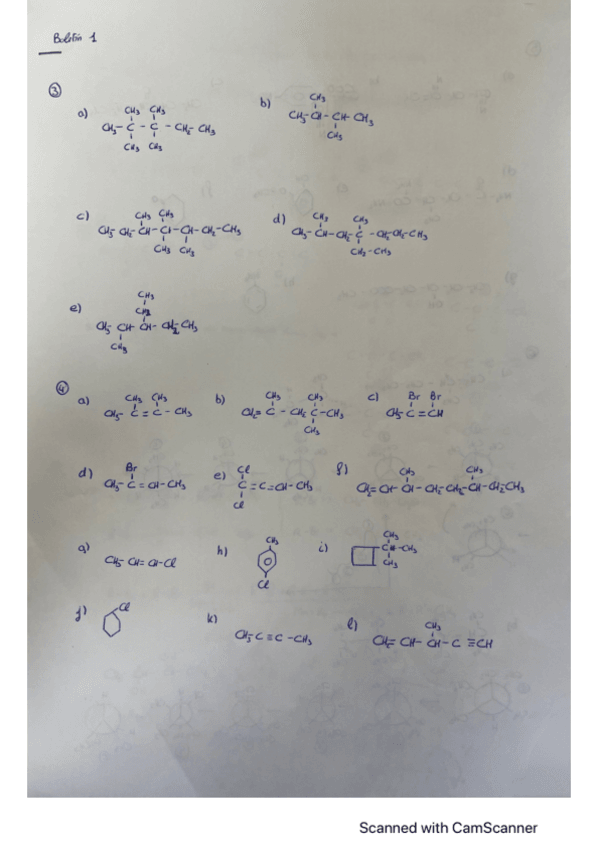 Boletín 1
③
a) CH₃ CH₃ b) CH₃
CH₃- C - C - CH₂- CH₃ CH₃-CH-CH-CH₃
CH₃ CH₃ CH₃
c) CH₃ CH₃ d) CH₃ CH₃
CH₃ CH₂-CH-CH-CH-CH₂-CH₃ CH₃-CH-CH₂-C-CH₂CH₂-CH₃
CH₃ CH₃ CH₂-CH₃
e) CH₃
CH₂
CH₃ CH-CH-CH₂CH₃
CH₃
④
a) CH₃ CH₃ b) CH₃ CH₃ c) Br Br
CH₃- C = C - CH₃ CH₂= C - CH₂ C -CH₃ CH₃-C=CH
CH₃
d) Br e) Cl f) CH₃ CH₃
CH₃-C=CH-CH₃ C=C=CH-CH₃ CH₂=CH-CH-CH₂-CH₂-CH-CH₂CH₃
Cl
g) CH₃ CH=CH-Cl h) CH₃ i) CH₃
Cl -CH₃
CH₃
j) Cl k) CH₃-C≡C-CH₃ l) CH₃
CH₂=CH-CH-C≡CH
Scanned with CamScanner